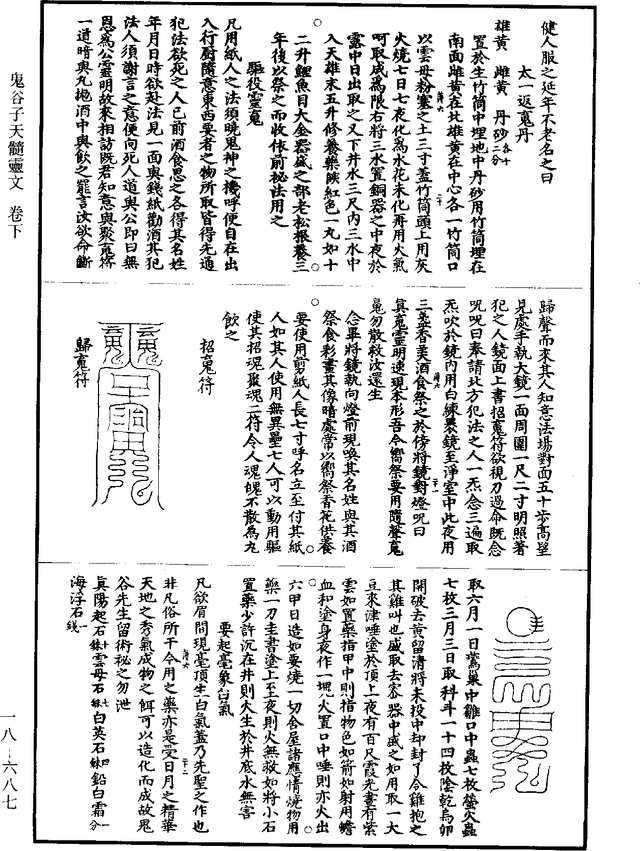 健人服之延年不老名之曰
太一返䰟丹
雄黃　雌黃　丹砂各十二分
置於生竹筒中埋地中丹砂用竹筒埋在
南面雌黃在北雄黃在中心各一竹筒口
以雲母粉塞之土三寸蓋竹筒頭上用灰
火燒七日七夜化為水花未化再用火氣
呵取成為限右將三水置銅器之中夜於
露中日出取之又下井水三尺內三水中
入天雄末五升修養藥餤紅色一丸如十
二升鯉魚目大金器盛之部老松根養三
年後以祭之而收依前秘法用之
驅役靈䰟
凡用紙人之法須曉鬼神之機呼便自在出
入行廚隨意東西要者之物所取皆得先通
犯法欲死之人已前酒食思之各得其名姓
年月日時欲赴法見一面與錢紙勸酒其犯
法人須謝言之意便向死人道與公即曰無
恩為公靈明故來相訪既君知意與聚䰟符
一道暗與丸拋酒中與飲之罷言汝欲命斷
歸聲而來其人知意法場對面五十步高望
見處手執大鏡一面周圍一尺二寸明照著
犯之人鏡面上書招䰟符欲視刀過命既念
呪呪曰奉請北方犯法之人一炁念三遍取
炁吹於鏡內用白練裹鏡至淨室中此夜用
三盞香美酒食祭之於傍將鏡對燈呪曰
真䰟靈明速現本形吾今嚮祭要用隨聲䰟
䰟勿散敕汝還生
念畢將鏡執向燈前現喚其名姓與其酒
祭食彩畫其像暗處常以嚮祭香花供養
要使用剪紙人長七寸呼名立至付其紙
人如其人使用無異壘七人可以動用驅
使其招魂聚魂二符令人魂魄不散為丸
飲之
招䰟符
歸䰟符
取六月一日鷰巢中雛口中蟲七枚螢火蟲
七枚三月三日取科斗一十四枚陰乾烏卵
開破去黃留清將末投中却封了令雞抱之
其雞叫也盛取去宻器中盛之如用取一大
豆來津唾塗於頂上夜有百尺霞光晝有紫
雲如置藥指甲中則指物色如箭如射用蟾
血和塗身夜作一塊火置口中唾則亦火出
六甲日造如要燒一切舍屋諸應情燒物用
藥一刀圭書塗上至夜則火無救如將小石
置藥少許沉在井則火生於井底水無害
要起毫象白氣
凡欲眉間現毫頂生白氣蓋乃先聖之作也
非凡俗所干今用之藥亦是受日月之精華
天地之秀氣成物之餌可以造化而成故鬼
谷先生留術秘之勿泄
真陽起石　雲母石　白英石　鉛白霜
海浮石
鬼谷子天髓靈文　卷下
一八－六八七